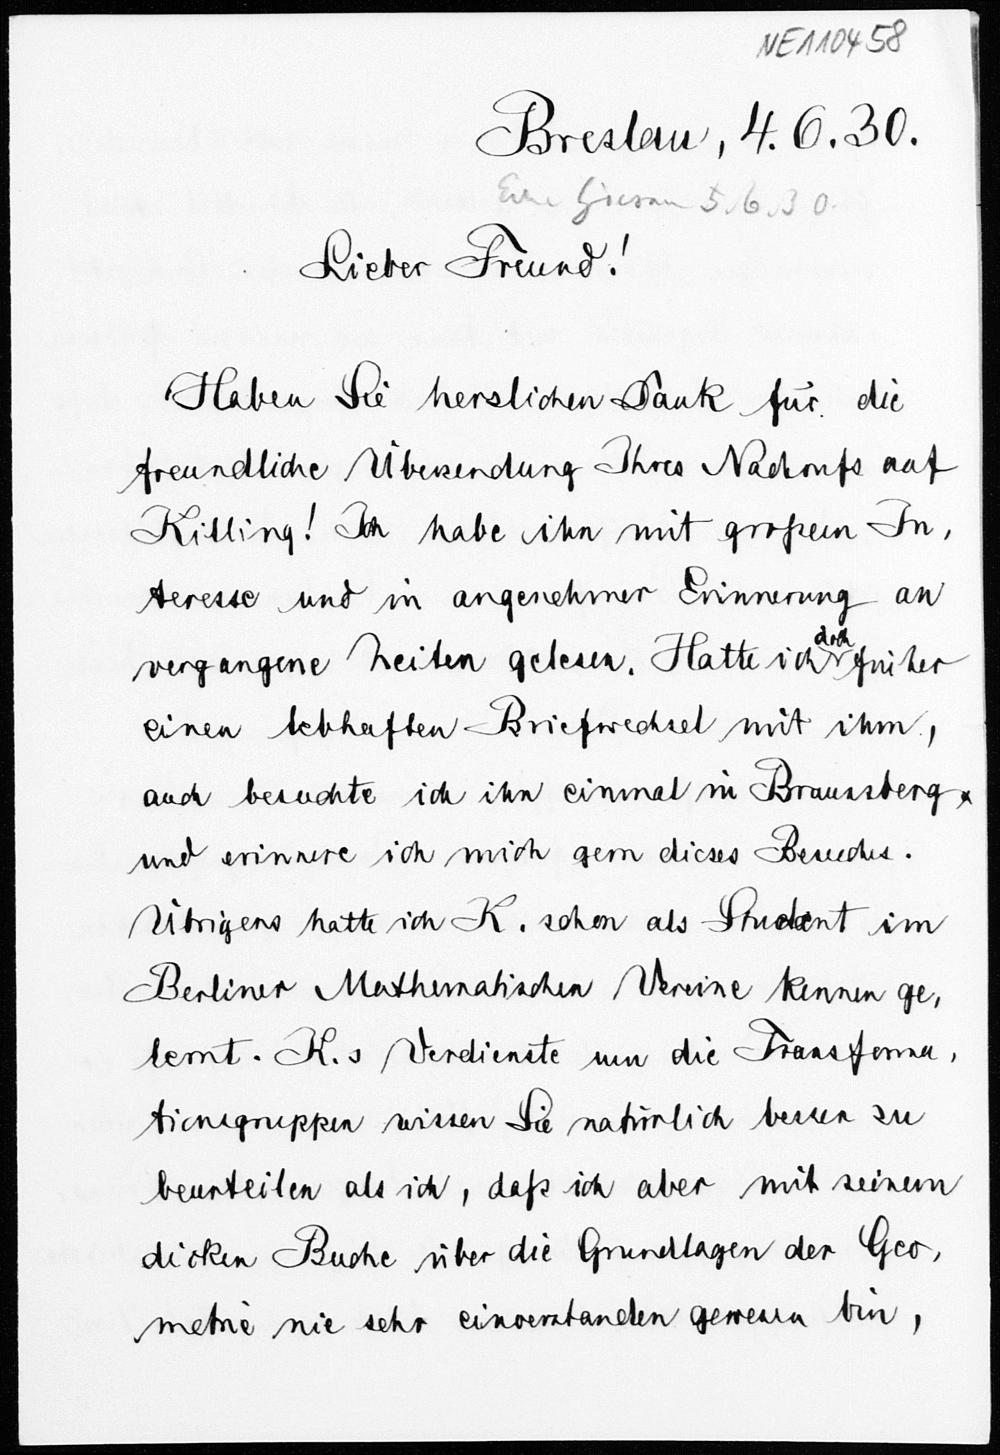 NE110458
Breslau, 4.6.30.
5.6.30.
Lieber Freund!
Haben Sie herzlichen Dank für die
freundliche Übersendung Ihres Nachrufs auf
Killing! Ich habe ihn mit großem In,
teresse und in angenehmer Erinnerung an
vergangene Zeiten gelesen. Hatte ich doch früher
einen lebhaften Briefwechsel mit ihm,
auch besuchte ich ihn einmal in Braunsberg
und erinnere ich mich gern dieses Besuches.
Übrigens hatte ich K. schon als Student im
Berliner Mathematischen Vereine kennen ge,
lernt. K.s Verdienste um die Transforma,
tionsgruppen wissen Sie natürlich besser zu
beurteilen als ich, daß ich aber mit seinem
dicken Buche über die Grundlagen der Geo,
metrie nie sehr einverstanden gewesen bin,